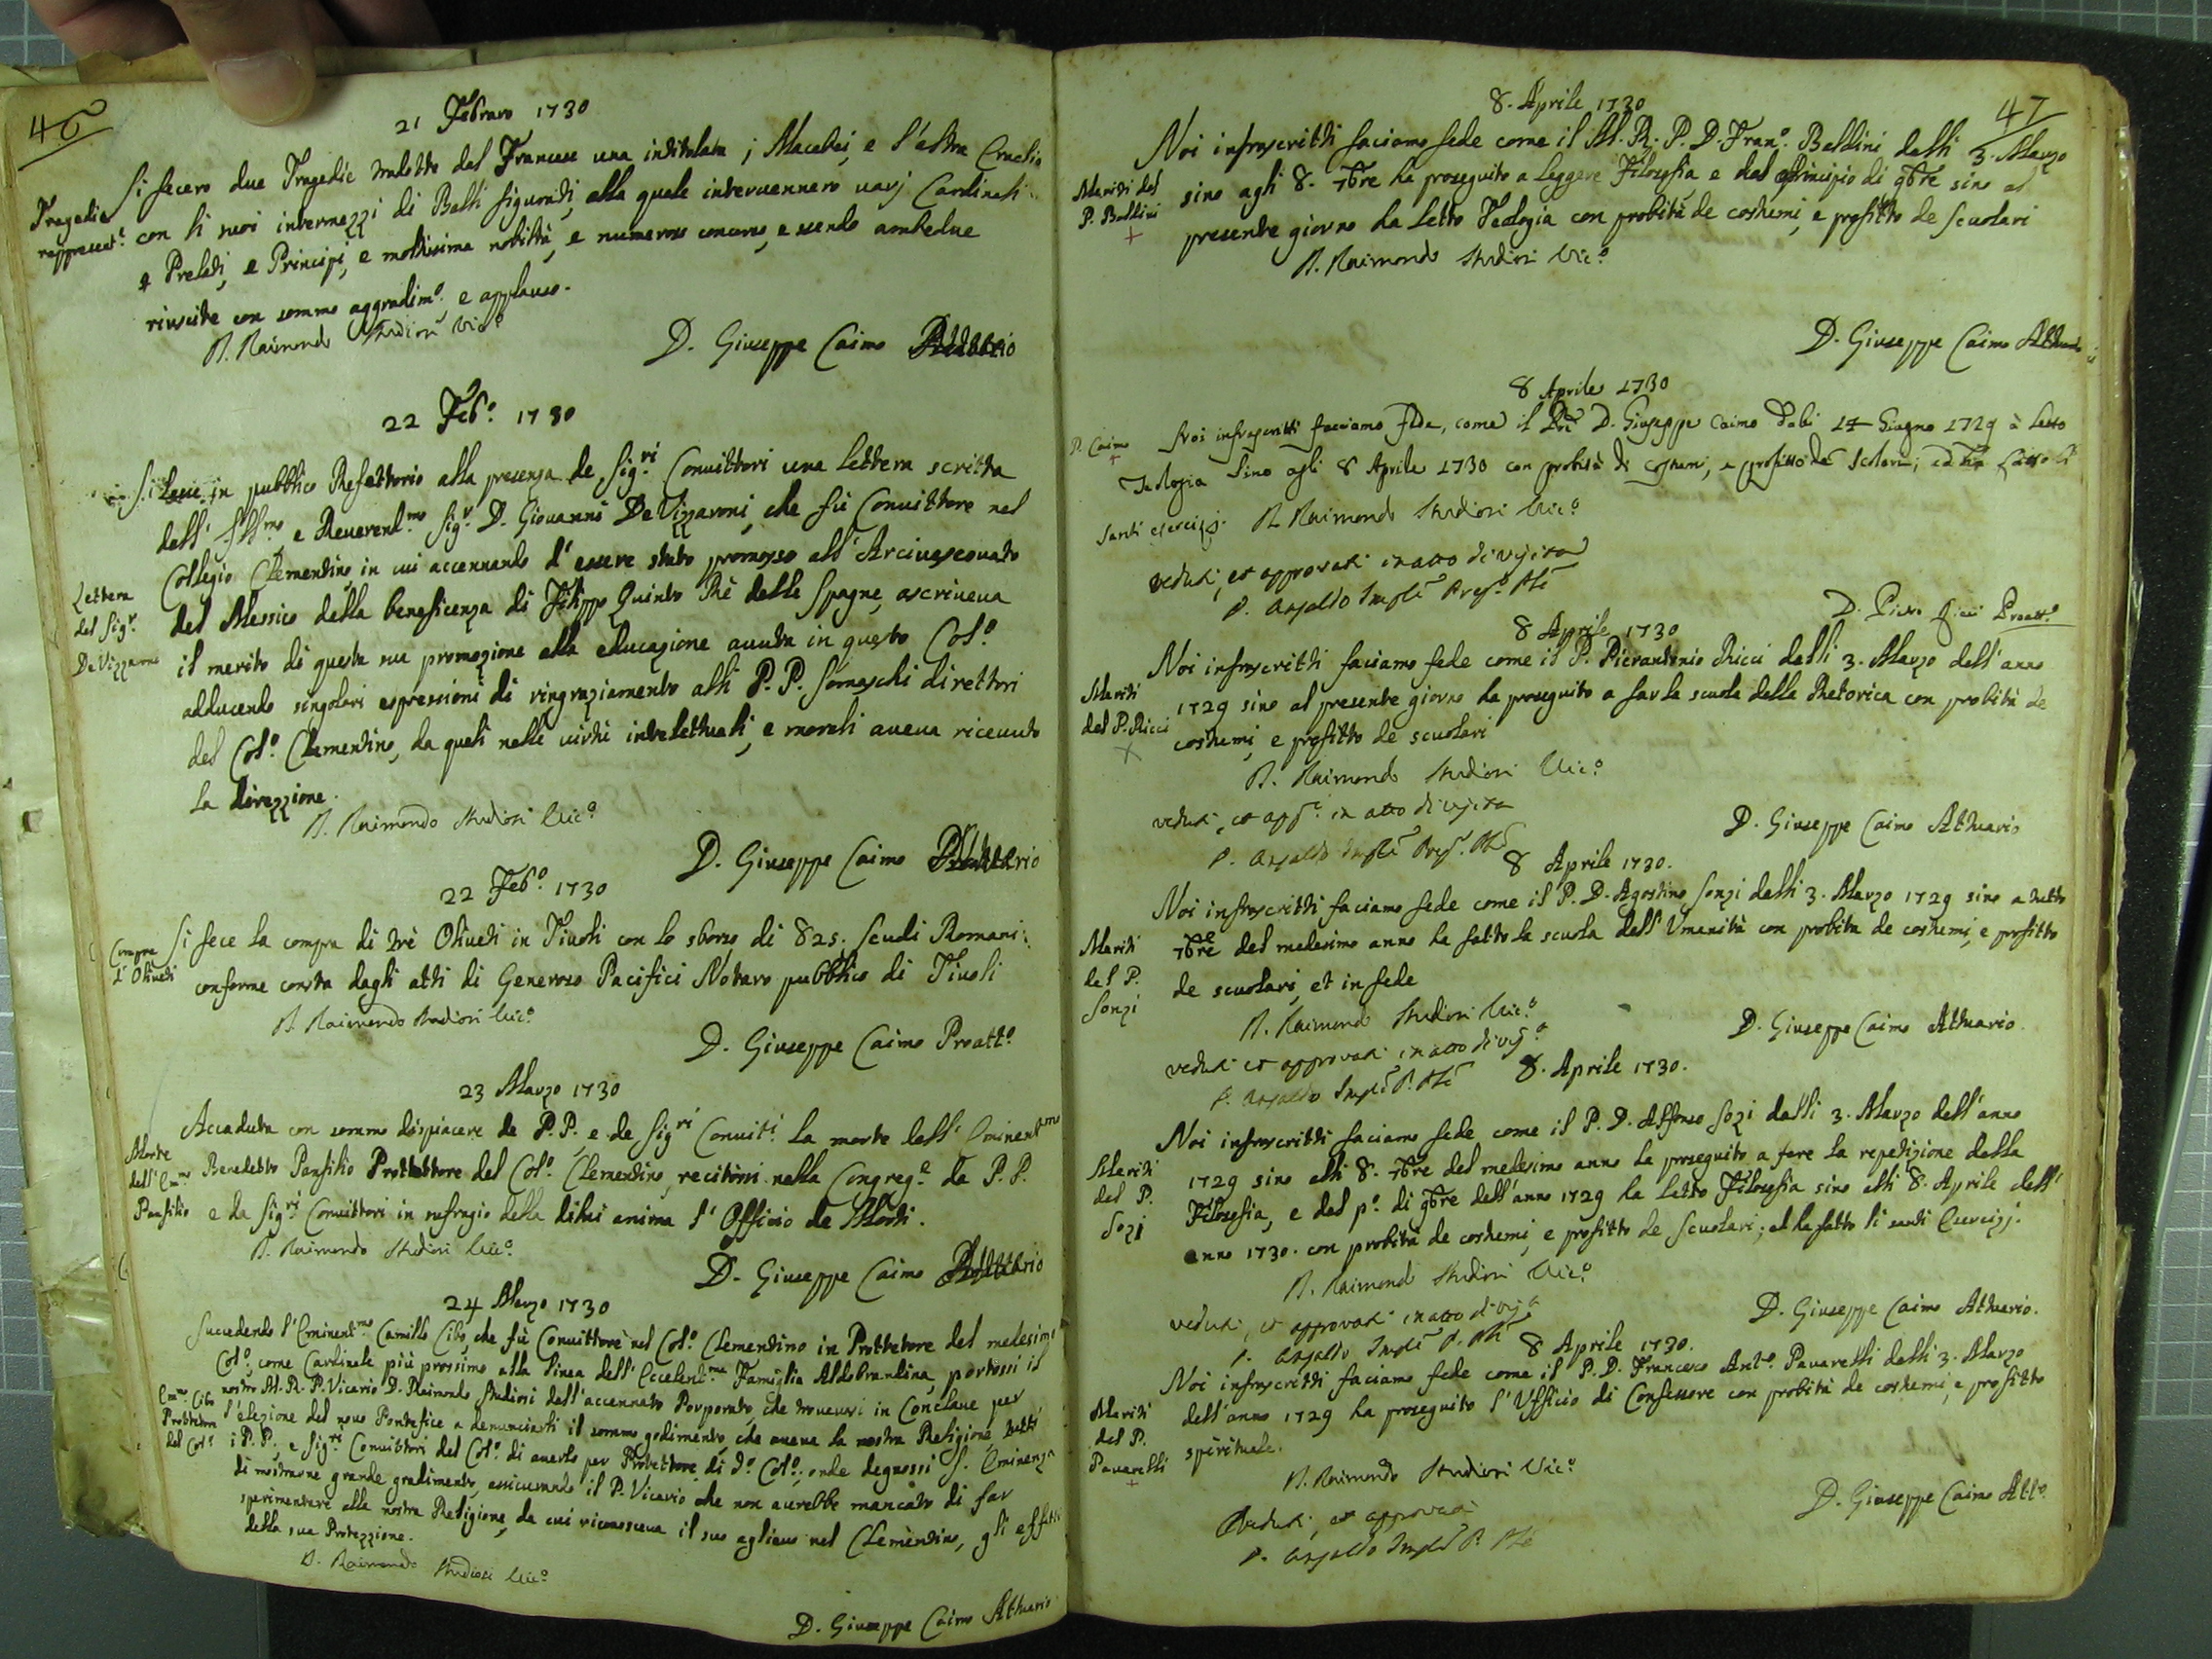 46
21 Febraro 1730
Tragedie
rappresent.e
Si fecero due Tragedie tradotte dal Francese una intitolata i Macabei, e l'altra
con li suoi intermezzi di Balli figurati, alla quale intervennero varj Cardinali
e Prelati, e Principi, e moltissima nobiltà, e numeroso concorso, essendo ambedue
riuscite con sommo aggradim.o e applauso.
D. Raimondo Studiosi Vic.o
D. Giuseppe Caimo
22 Feb.o 1730
Lettera
del Sig.r
De Vizzarroni
Si lesse in pubblico Refettorio alla presenza de Sig.ri Convittori una lettera scritta
dall' Ill.mo e Reverend.mo Sig.r D. Giovanni De Vizzaroni, che fù Convittore nel
Collegio Clementino, in cui accennando d'essere stato promosso all'Arcivescovato
del Messico dalla beneficenza di Filippo Quinto Rè delle Spagne, ascriveva
il merito di questa sua promozione alla educazione avuta in questo Col.o
adducendo singolari espressioni di ringraziamento alli P.P. Somaschi direttori
del Col.o Clementino, da quali nelle virtù intelettuali, e morali aveva ricevuto
la direzzione.
D. Raimondo Studiosi Vic.o
D. Giuseppe Caimo
22 Feb.o 1730
Compra
d'Oliveti
Si fece la compra di trè Oliveti in Tivoli con lo sborso di 825. scudi Romani
conforme consta dagli atti di Generoso Pacifici Notaro pubblico di Tivoli
D. Raimondo Studiosi Vic.o
D. Giuseppe Caimo Proatt.o
23 Marzo 1730
Morte
dell'Em.mo
Panfilio
Accaduta con sommo dispiacere de P.P. e de Sig.ri Convit.i la morte dell' Eminent.mo
Benedetto Panfilio Prottettore del Col.o Clementino, recitossi nella Congreg.e da P.P.
e da Sig.ri Convittori in sufragio della di lui anima l'Officio de Morti.
D. Raimondo Studiosi Vic.o
D. Giuseppe Caimo
24 Marzo 1730
Em.mo Cibo
Prottettore
del Col.o
Succedendo l'Eminent.mo Camillo Cibo, che fù Convittore nel Col.o Clementino in Prottetore del medesimo
Col.o come Cardinale più prossimo alla linea dell' Eccelent.ma Famiglia Aldobrandina, portossi il
nostro M.R.P. Vicario D. Raimondo Studiosi dall'accennato Porporato, che trovavasi in Conclave per
l'elezione del novo Pontefice a denunciarli il sommo godimento, che aveva la nostra Religione, tutti
i P.P. e Sig.ri Convittori del Col.o di averlo per Protettore di d.o Col.o; onde degnossi S. Eminenza
di mostrarne grande gradimento, assicurando il P. Vicario che non averebbe mancato di far
sperimentare alla nostra Religione, da cui riconosceva il suo aglievo nel Clementino, gli effetti
della sua Protezzione.
D. Raimondo Studiosi Vic.o
D. Giuseppe Caimo Attuario
47
8. Aprile 1730
Meriti del
P. Baldini
Noi infrascritti facciamo fede come il M.R.P.D. Fran.o Baldini dalli 3. Marzo
sino agli 8. 7bre ha proseguito a leggere Filosofia e dal principio di 9bre sino al
presente giorno ha letto Teologia con probità de costumi, e profitto de scuolari
D. Raimondo Studiosi Vic.o
D. Giuseppe Caimo Attuario
8 Aprile 1730
P. Caimo
Noi infrascritti facciamo fede, come il Pre D. Giuseppe Caimo dalli 14 Giugno 1729 à letto
Teologia sino agli 8 Aprile 1730 con probità di costumi, e profitto de Scolari, ed ha fatto li
santi esercizj. D. Raimondo Studiosi Vic.o
veduti, et approvati in atto di visita
D. Pietro Ricci Proatt.o
8 Aprile 1730
Meriti
del P. Ricci
Noi infrascritti facciamo fede come il P. Pierantonio Ricci dalli 3. Marzo dell'anno
1729 sino al presente giorno ha proseguito a far la scuola della Rhetorica con probità de
costumi, e profitto de scuolari
D. Raimondo Studiosi Vic.o
veduti, et app.i in atto di visita
D. Giuseppe Caimo Attuario
8 Aprile 1730.
Meriti
del P.
Sonzi
Noi infrascritti facciamo fede come il P.D. Agostino Sonzi dalli 3. Marzo 1729 sino a tutto
7bre del medesimo anno ha fatto la scuola dell'Umanità con probità de costumi, e profitto
de scuolari, et in fede
D. Raimondo Studiosi Vic.o
veduti et approvati in atto di vis.a
D. Giuseppe Caimo Attuario.
8. Aprile 1730.
Meriti
del P.
Sozi
Noi infrascritti facciamo fede come il P.D. Alfonso Sozi dalli 3. Marzo dell'anno
1729 sino alli 8. 7bre del medesimo anno ha proseguito a fare la repetizione della
Filosofia, e dal p.o di 9bre dell'anno 1729 ha letto Filosofia sino alli 8. Aprile dell'
anno 1730. con probità de costumi, e profitto de scuolari; ed ha fatto li santi Esercizj.
D. Raimondo Studiosi Vic.o
veduti, et approvati in atto di vis.a
D. Giuseppe Caimo Attuario.
8 Aprile 1730.
Meriti
del P.
Pavarelli
Noi infrascritti facciamo fede come il P.D. Francesco Ant.o Pavarelli dalli 3. Marzo
dell'anno 1729 ha proseguito l'Ufficio di Confessore con probità de costumi, e profitto
spirituale.
D. Raimondo Studiosi Vic.o
Veduti, et approvati
D. Giuseppe Caimo Att.o